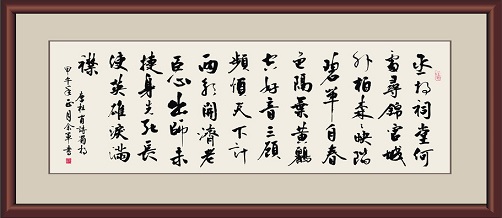 丞相祠堂何
處尋錦官城
外柏森々映階
碧草自春
色隔葉黃鸝
空好音三顧
頻煩天下計
兩朝開濟老
臣心出師未
捷身先死長
使英雄淚滿
襟
唐杜甫詩蜀相
甲午年正月軍書